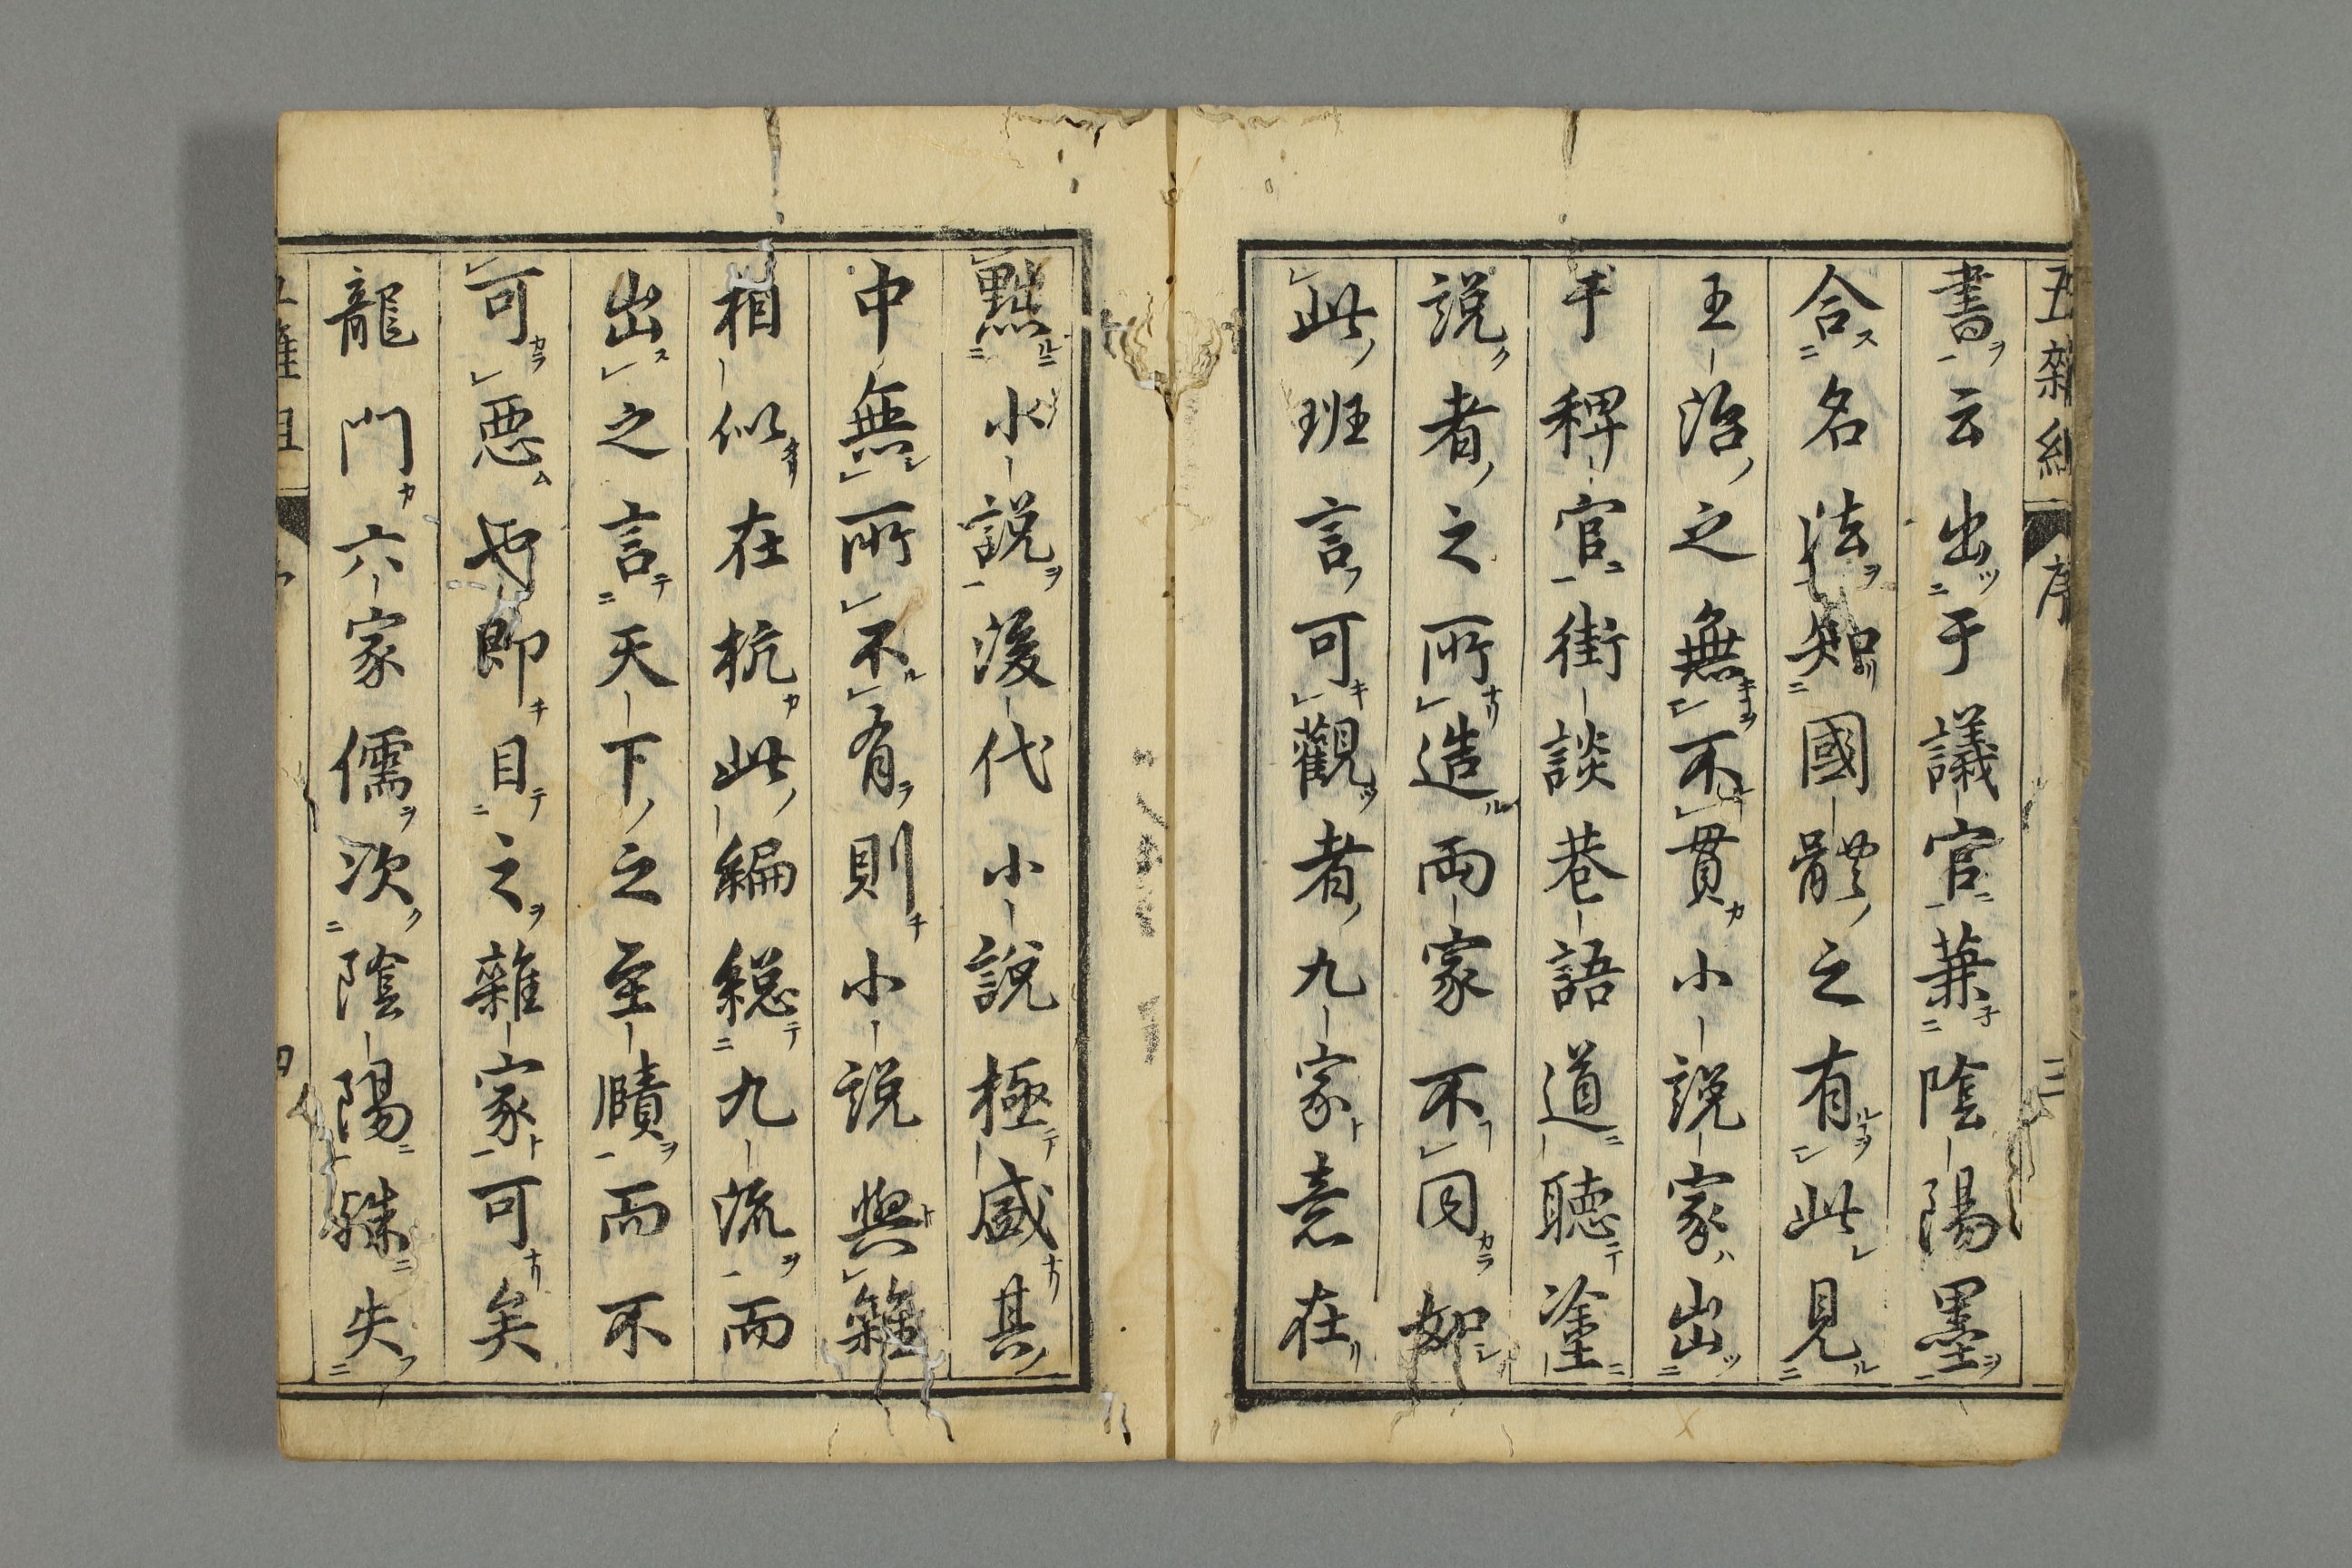 五雜組 序 三
書云出于議官兼陰陽墨
合名法知國體之有此見
王治之無不貫小說家出
于稗官街談巷語道聽塗
說者之所造兩家不同如
此班言可觀者九家意在
黜小說後代小說極盛其
中無所不有則小說與雜
相似在杭此編総九流而
出之言天下之至賾而不
可惡也即目之雜家可矣
龍門六家儒次陰陽殊失
四